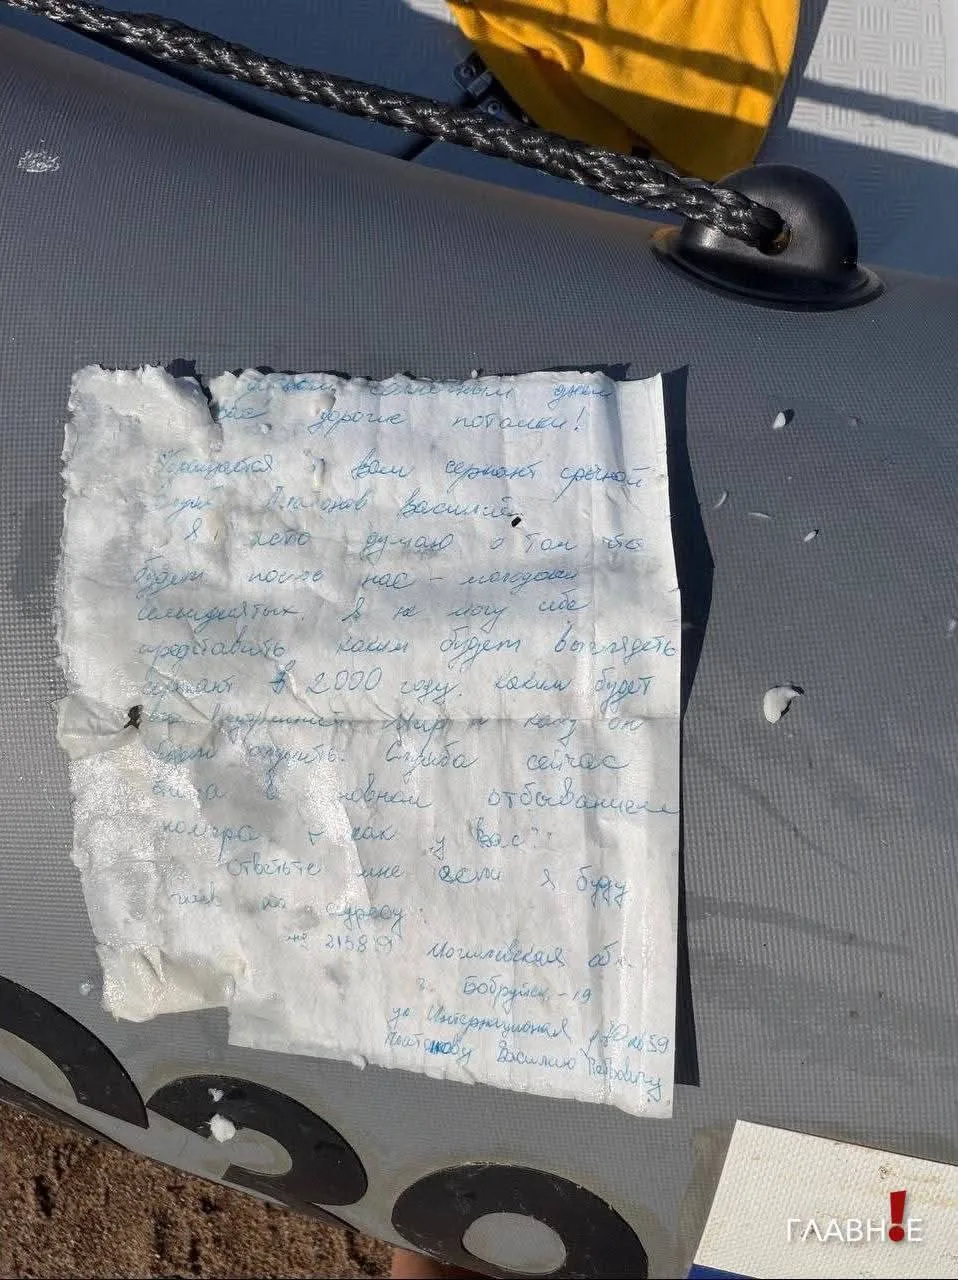 солнечным днем
вас дорогие потомки!
Обращается к вам сержант срочной
Платонов Василий.
Я часто думаю о том что
будет после нас - молодёжи
семидесятых. Я не могу себе
представить каким будет выглядеть
сержант в 2000 году. каким будет
его Мир и кому он
будет служить. Служба сейчас
в основном отбыванием
номера - а как у вас?
Ответьте мне если я буду
жив по адресу:
213819 Могилевская обл.
г. Бобруйск - 19
ул Интернациональная 70 кв 59
Платонову Василию Петровичу
ГЛАВН!Е